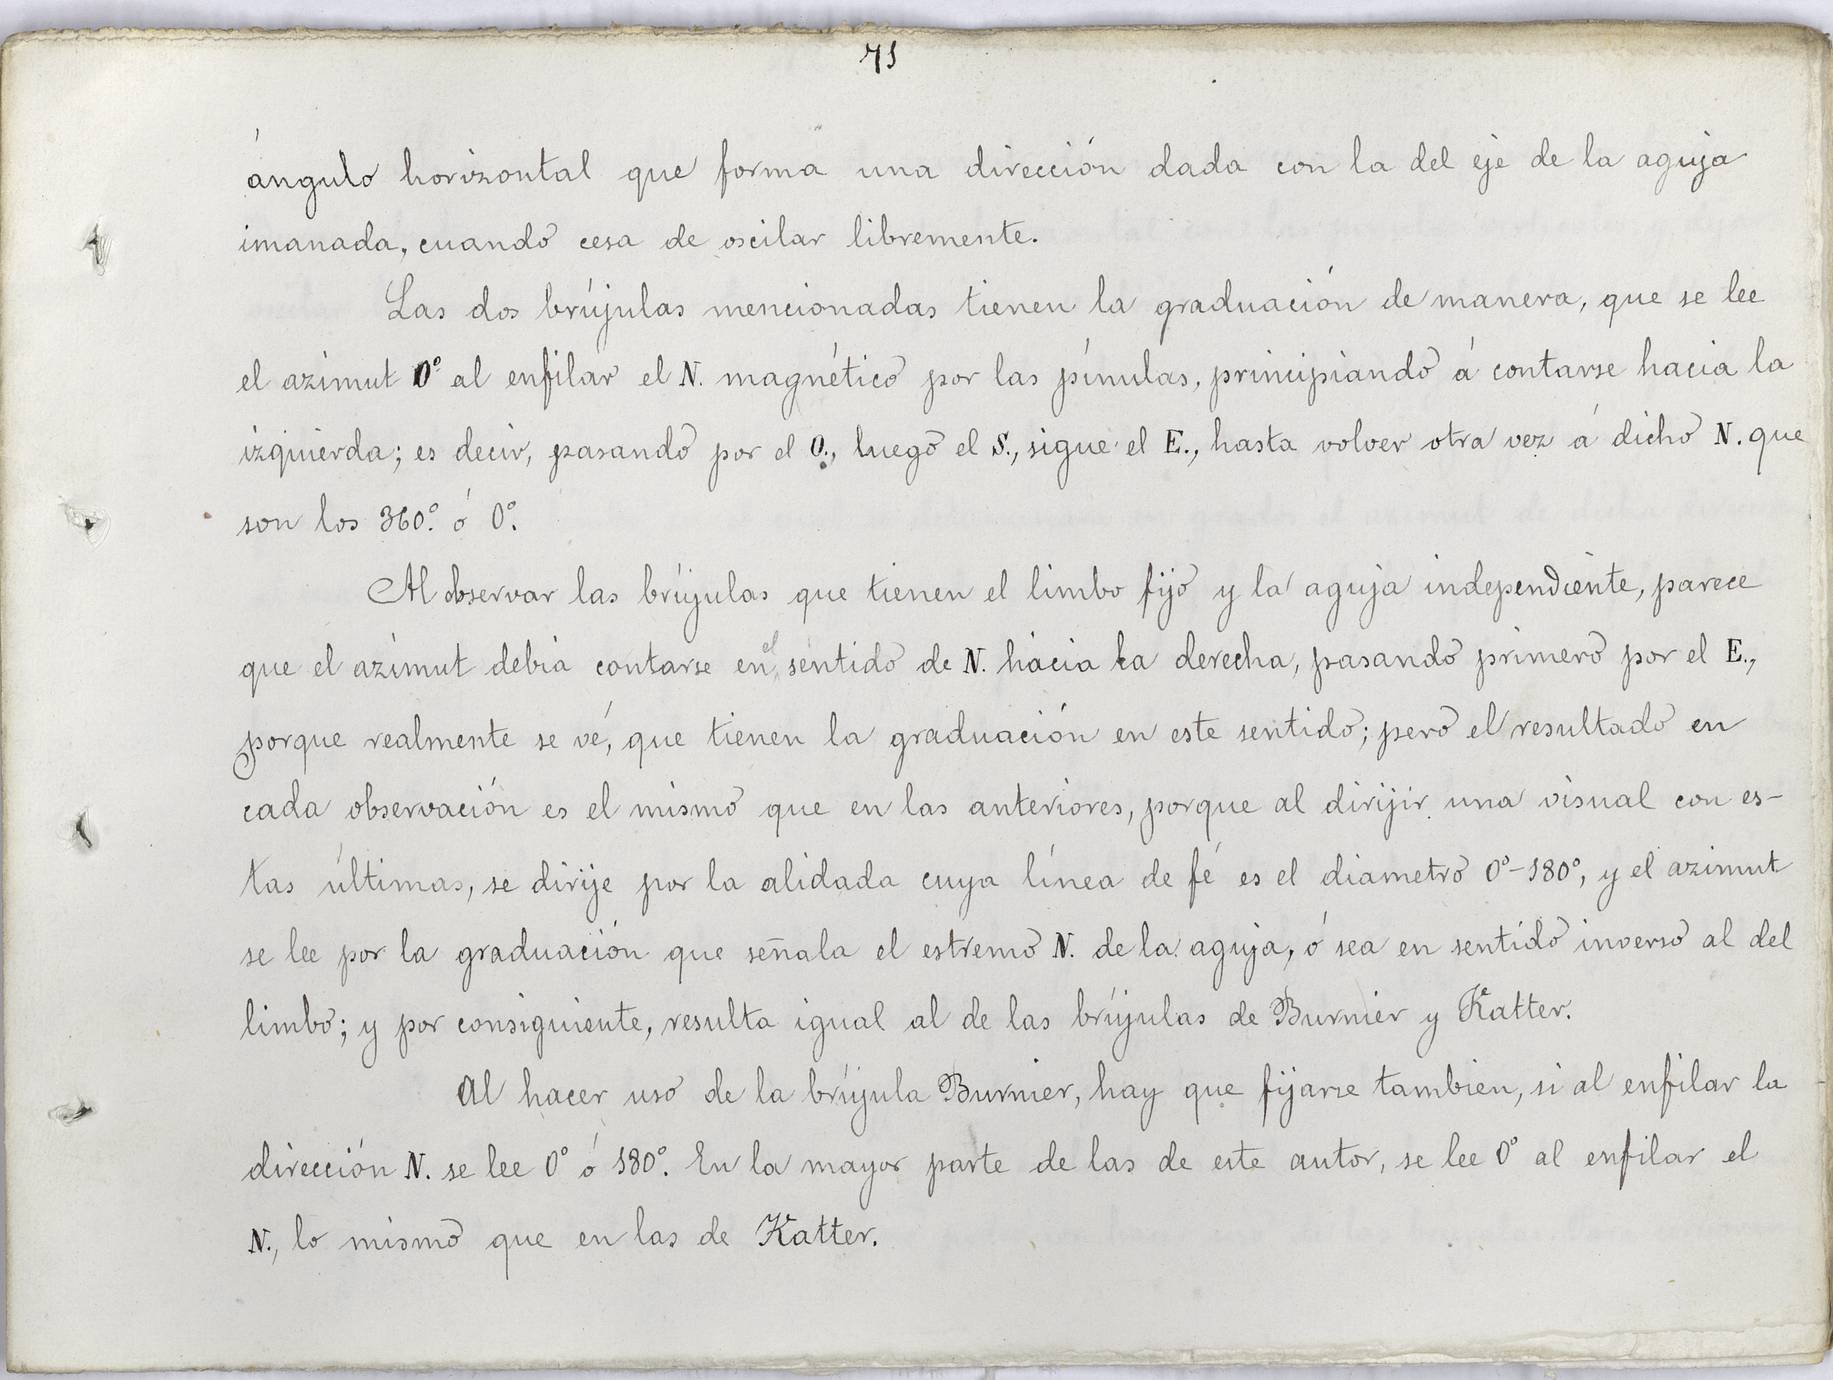 71
ángulo horizontal que forma una dirección dada con la del eje de la aguja
imanada, cuando cesa de oscilar libremente.
Las dos brújulas mencionadas tienen la graduación de manera, que se lee
el azimut 0° al enfilar el N. magnético por las pínulas, principiando á contarse hacia la
izquierda; es decir, pasando por el O., luego el S., sigue el E., hasta volver otra vez á dicho N. que
son los 360° ó 0°.
Al observar las brújulas que tienen el limbo fijo y la aguja independiente, parece
que el azimut debia contarse en el sentido de N. hácia la derecha, pasando primero por el E.,
porque realmente se vé, que tienen la graduación en este sentido; pero el resultado en
cada observación es el mismo que en las anteriores, porque al dirijir una visual con es-
tas últimas, se dirije por la alidada cuya línea de fé es el diametro 0°-180°, y el azimut
se lee por la graduación que señala el estremo N. de la aguja, ó sea en sentido inverso al del
limbo; y por consiguiente, resulta igual al de las brújulas de Burnier y Katter.
Al hacer uso de la brújula Burnier, hay que fijarse tambien, si al enfilar la
dirección N. se lee 0° ó 180°. En la mayor parte de las de este autor, se lee 0° al enfilar el
N., lo mismo que en las de Katter.